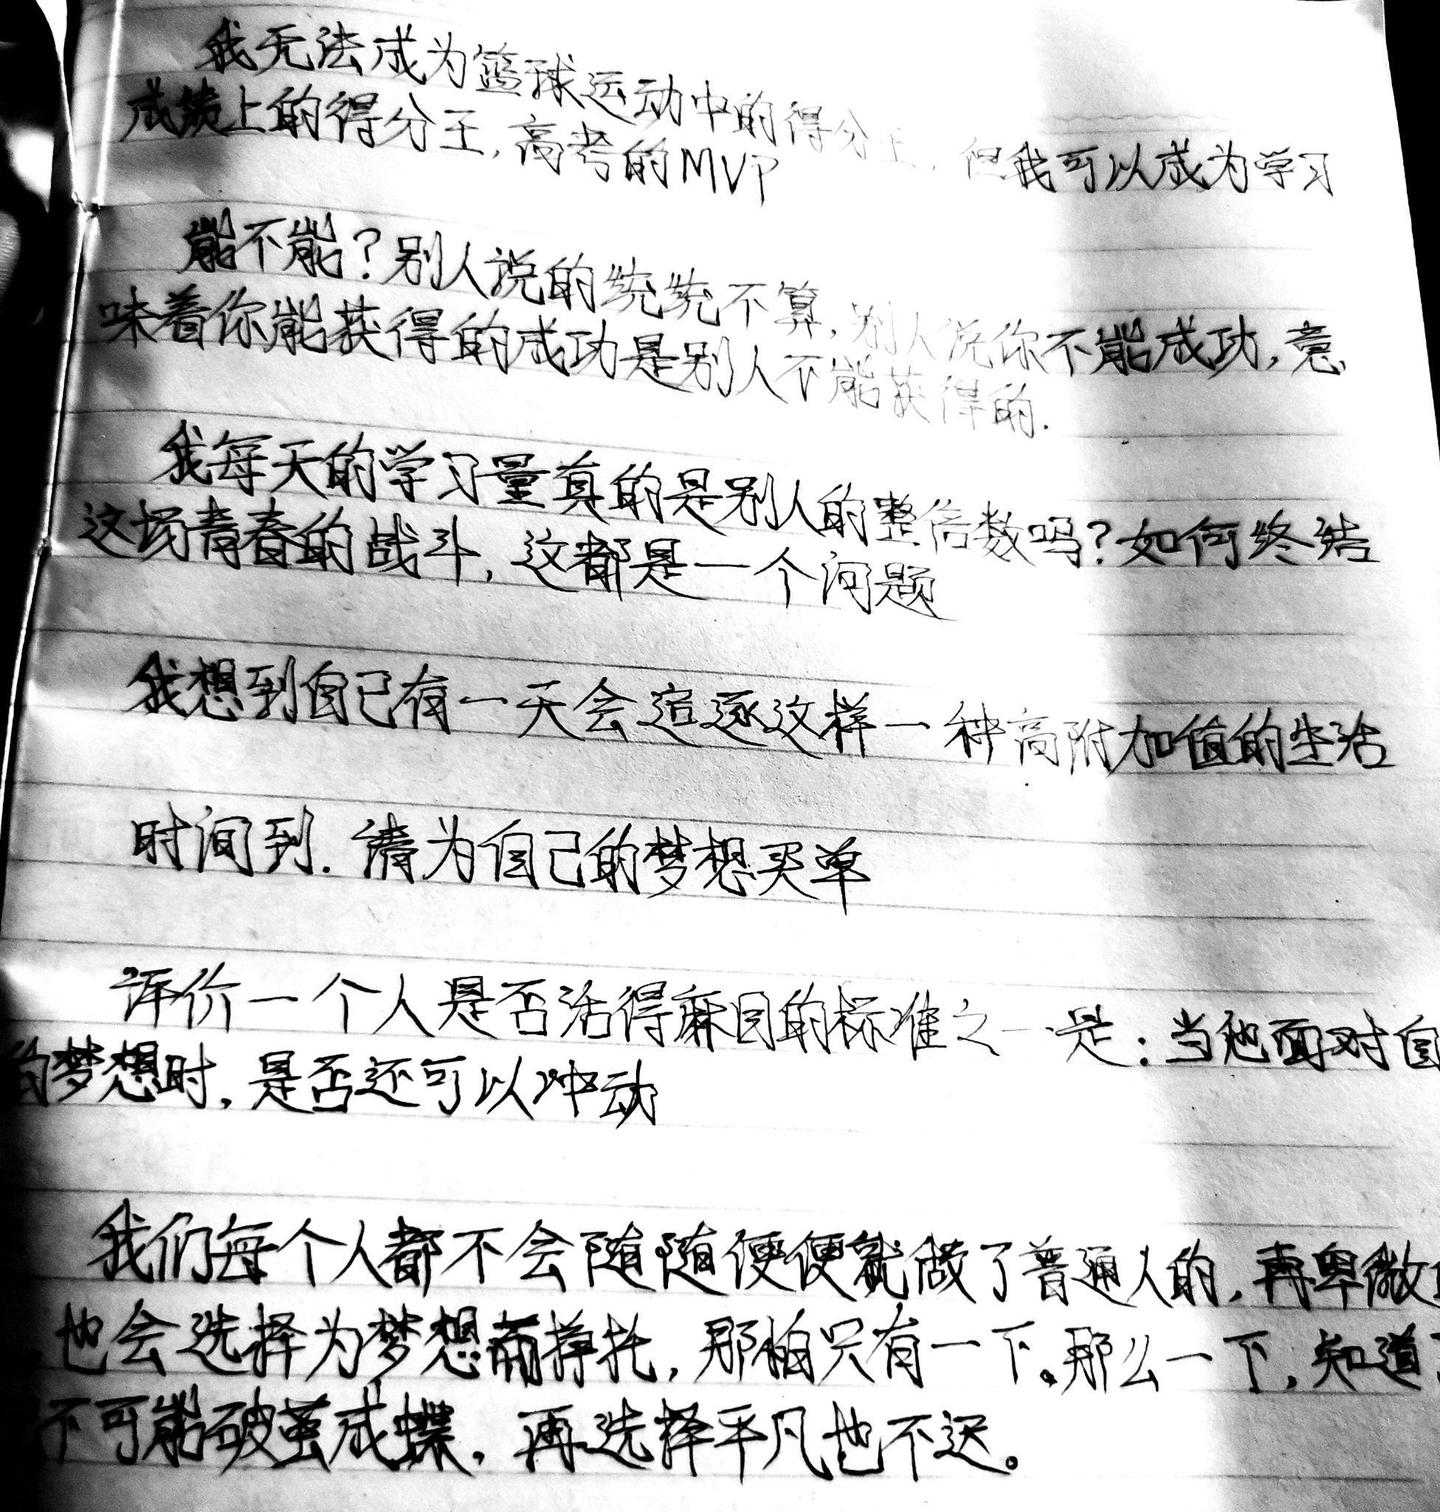 我无法成为篮球运动中的得分王，但我可以成为学习
成绩上的得分王，高考的MVP
能不能？别人说的统统不算，别人说你不能成功，意
味着你能获得的成功是别人不能获得的.
我每天的学习量真的是别人的整倍数吗？如何终结
这场青春的战斗，这都是一个问题
我想到自己有一天会追逐这样一种高附加值的生活
时间到. 请为自己的梦想买单
评价一个人是否活得麻目的标准之一是：当他面对自
的梦想时，是否还可以冲动
我们每个人都不会随随便便就做了普通人的，再卑微
也会选择为梦想而挣扎，那怕只有一下。那么一下，知道
不可能破茧成蝶，再选择平凡也不迟。